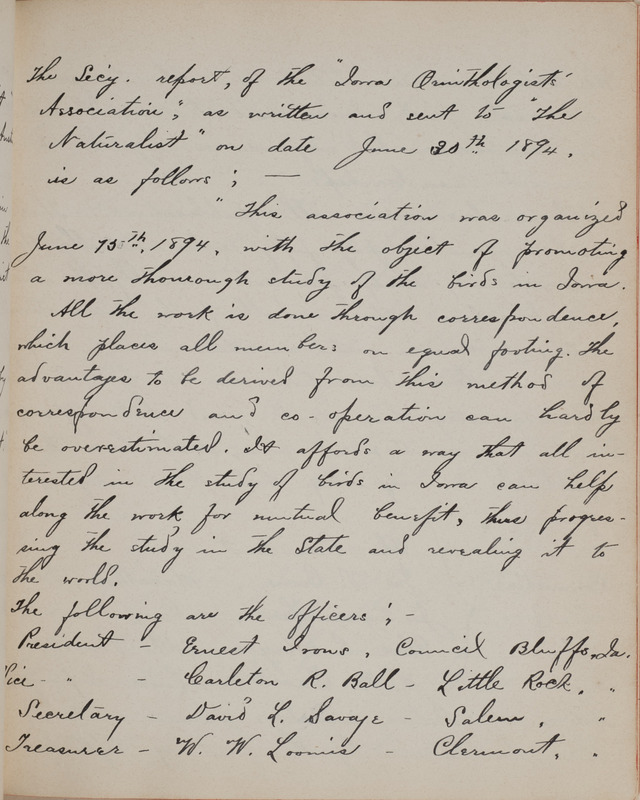 The Sec'y. report, of the "Iowa Ornithologists'
Association", as written and sent to "The
Naturalist" on date June 30th 1894,
is as follows; —
"This association was organized
June 15th, 1894, with the object of promoting
a more thourough study of the birds in Iowa.
All the work is done through correspondence,
which places all members on equal footing. The
advantages to be derived from this method of
correspondence and co-operation can hardly
be overestimated. It affords a way that all in-
terested in the study of birds in Iowa can help
along the work for mutual benefit, thus progres-
sing the study in the State and revealing it to
the world.
The following are the officers; -
President - Ernest Irons, Council Bluffs, Ia.
Vice- " - Carleton R. Ball - Little Rock, "
Secretary - David L. Savage - Salem, "
Treasurer - W. W. Loomis - Clermont, "